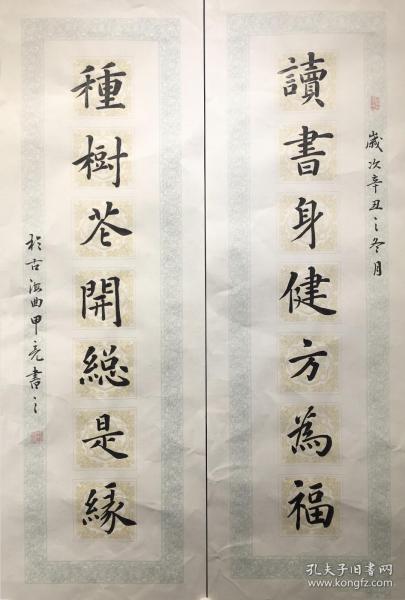 歲次辛丑之冬月
讀書身健方為福
種樹花開總是緣
於古海曲甲亮書之
孔夫子旧书网
www.kongfz.com